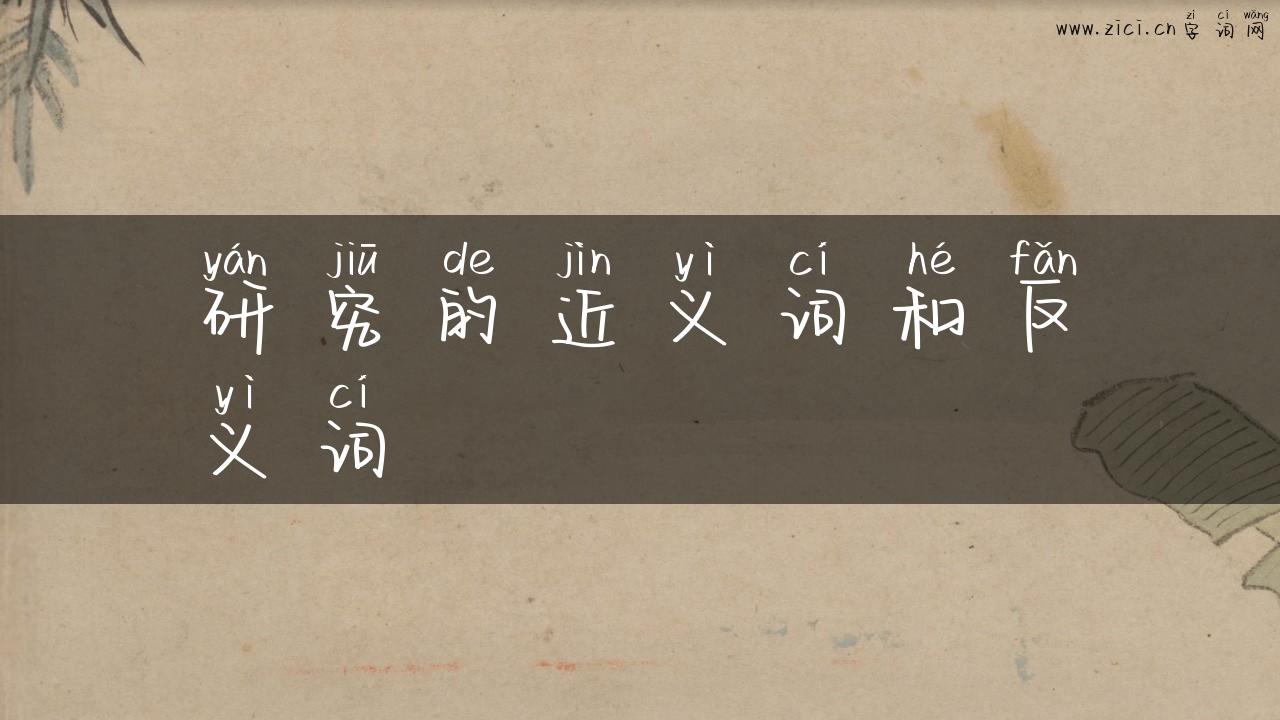 zì cí wǎng
www.zici.cn 字 词 网
yán jiū de jìn yì cí hé fǎn
研 究 的 近 义 词 和 反
yì cí
义 词